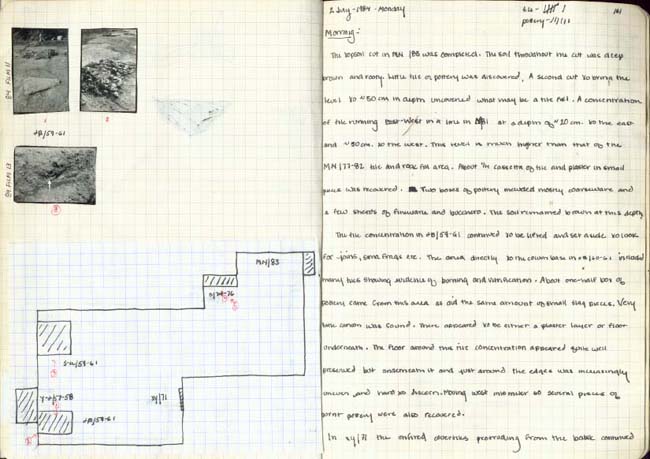 84 FILM 11
1
2
AB/59-61
84 FILM 13
3
MN/83
S-U/59-61
AB/59-61
2 July - 1984 - Monday
tile -
pottery -
161
Morning:
The topsoil cut in MN /83 was completed. The soil throughout the cut was deep
brown and rooty. Little tile or pottery was discovered. A second cut to bring the
level to ~50 cm in depth uncovered what may be a tile fall. A concentration
of tile running East-West in a line in at a depth of ~20 cm. to the east
and ~30cm. to the west. This level is much higher than that of the
MN/77-82 tile and rock fall area. About cassetta of tile and plaster in small
pieces was recovered. Two boxes of pottery included mostly coarseware and
a few sherds of fineware and bucchero. The soil remained brown at this depth.
The tile concentration in AB/59-61 continued to be lifted and set aside to look
for joins, small frags etc. The area directly to the column base in included
many tiles showing evidence of burning and vitrification. About one-half box of
pottery came from this area as did the same amount of small tile pieces. Very
little carbon was found. There appeared to be either a plaster layer or floor
underneath. The floor around this tile concentration appeared quite well
preserved but underneath it and just around the edges was increasingly
uneven and hard to discern. Moving west into several pieces of
pottery were also recovered.
In the protruding from the balk continued